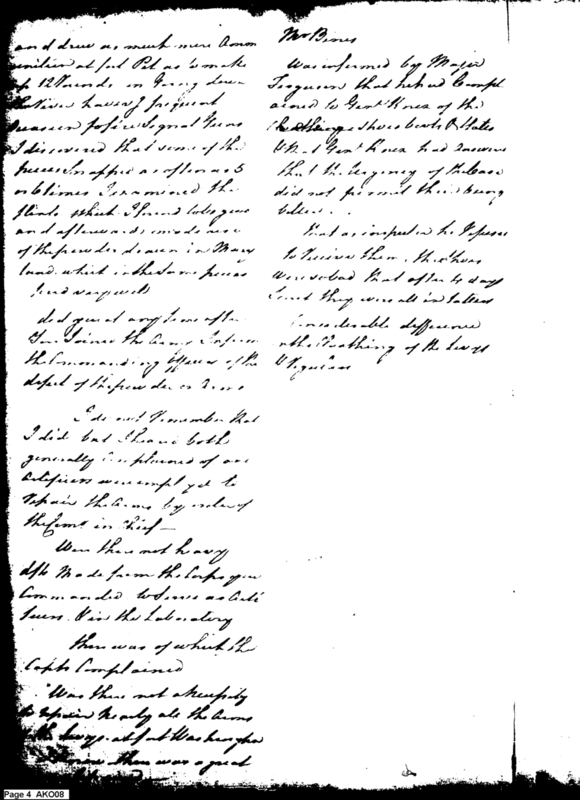 and drew as much more Amm
unition at fort Pitt as to make
up 12 Rounds, in going down
the River having frequent
occasion to fire Signal Guns
I discovered that some of the
pieces snapped as often as 5
or 6 times I examined the
flints which I found to be good
and afterwards made use
of the powder drawn in Mary
land which in the same pieces
fired very well
did you at any time after
you Joined the Army Inform
the Commanding Officer of the
defect of the powder or Arms
I do not Remember that
I did but I heard both
generally complained of and
Artificers were employed to
repair the Arms by order of
the Comr in Chief —
Were there not heavy
dfts Made from the Corps you
Commanded to Serve as Arti
ficers & in the Laboratory
there was of which the
Capts Complained
Was there not a Necessity
to repair Nearly all the Arms
of the Levys at fort Washington
I know there was a great
Mr Bines
Was informed by Major
Ferguson that he had Compl
ained to Genl Knox of the
Clothing Shoes & Hats
& that Genl Knox had answered
that the Urgency of the Case
did not permit their being
better.
that as inspector he refused
to receive them, the Shoes
were so bad that after 10 days
they were all in tatters
Considerable difference
in the Cloathing of the Levys
& Regulars
Page 4 AKO08